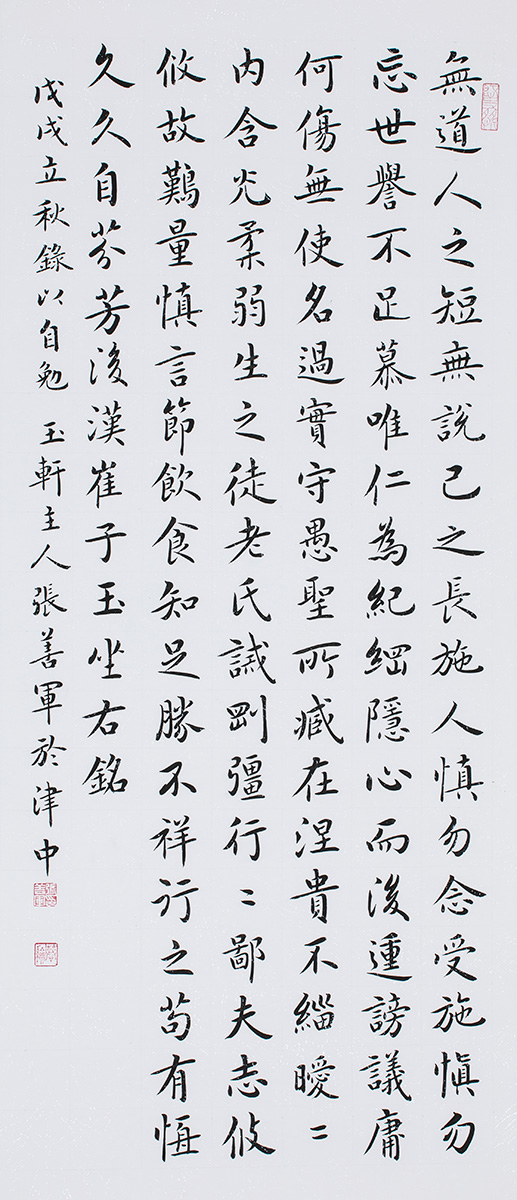 無道人之短無說己之長施人慎勿念受施慎勿
忘世譽不足慕唯仁為紀綱隱心而後動謗議庸
何傷無使名過實守愚聖所臧在涅貴不緇曖〻
內含光柔弱生之徒老氏誡剛彊行〻鄙夫志攸
攸故難量慎言節飲食知足勝不祥行之苟有恒
久久自芬芳後漢崔子玉坐右銘
戊戌立秋錄以自勉 玉軒主人張善軍於津中